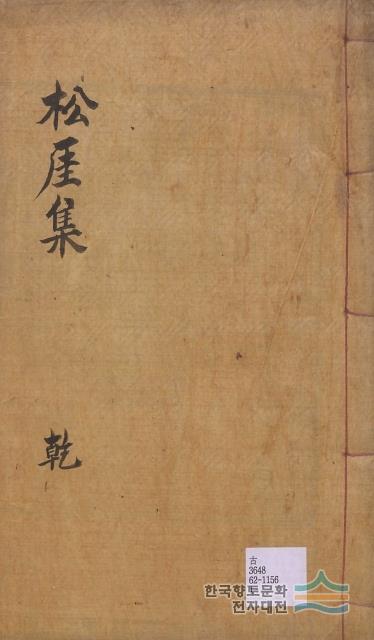 松厓集
乾
古
3648
62-1156
한국향토문화
전자대전